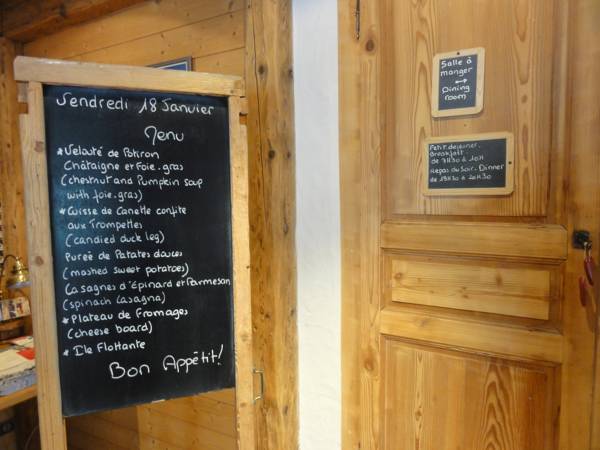 Vendredi 18 Janvier
Menu
* Velouté de Potiron
Châtaigne et Foie.gras
(chestnut and Pumpkin soup
with foie.gras)
* Cuisse de Canette confite
aux Trompettes
(candied duck leg)
Pureé de Patates douces
(mashed sweet potatoes)
Lasagnes d'épinard et Parmesan
(spinach Lasagna)
* Plateau de Fromages
(cheese board)
* Ile Flottante
Bon Appétit!
Salle à
manger
↔
Dining
room
Petit dejeuner.
Breakfast.
de 7H30 à 10H
Repas du Soir. Dinner
de 19H30 à 20H30